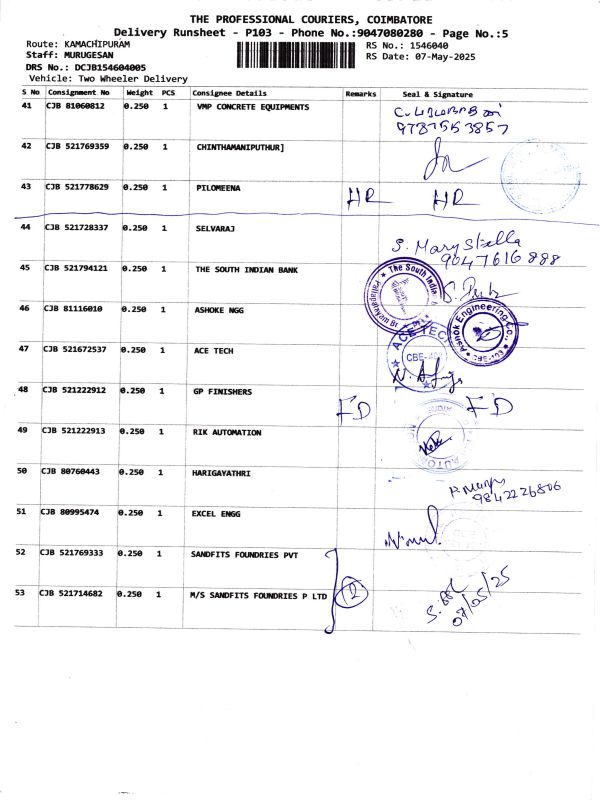 THE PROFESSIONAL COURIERS, COIMBATORE
Delivery Runsheet - P103 - Phone No.:9047080280 - Page No.:5
Route: KAMACHIPURAM RS No.: 1546040
Staff: MURUGESAN RS Date: 07-May-2025
DRS No.: DCJB154604005
Vehicle: Two Wheeler Delivery
S No Consignment No Weight PCS Consignee Details Remarks Seal & Signature
41 CJB 81060812 0.250 1 VMP CONCRETE EQUIPMENTS
9787553857
42 CJB 521769359 0.250 1 CHINTHAMANIPUTHUR]
43 CJB 521778629 0.250 1 PILOMEENA HR HR
44 CJB 521728337 0.250 1 SELVARAJ
S. Mary Stella
9047616888
45 CJB 521794121 0.250 1 THE SOUTH INDIAN BANK
The South India
46 CJB 81116010 0.250 1 ASHOKE NGG
Ashok Engineering Co.,
47 CJB 521672537 0.250 1 ACE TECH
ACE TEC
CBE-
48 CJB 521222912 0.250 1 GP FINISHERS FD FD
49 CJB 521222913 0.250 1 RIK AUTOMATION
50 CJB 80760443 0.250 1 HARIGAYATHRI
9842226806
51 CJB 80995474 0.250 1 EXCEL ENGG
52 CJB 521769333 0.250 1 SANDFITS FOUNDRIES PVT
53 CJB 521714682 0.250 1 M/S SANDFITS FOUNDRIES P LTD 2
07/05/25